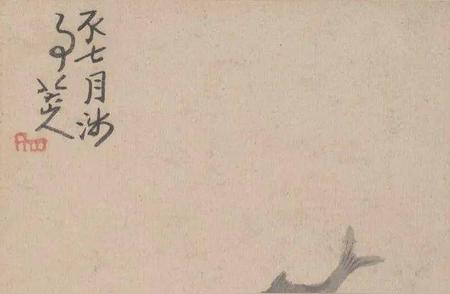 七月涉
事八大山人